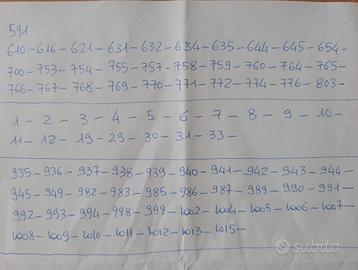 591
610-616-621-631-632-634-635-644-645-654
700-753-754-755-757-758-759-760-764-765
766-767-768-769-770-771-772-774-776-803-
1-2-3-4-5-6-7-8-9-10-
11-12-19-29-30-31-33-
935-936-937-938-939-940-941-942-943-944
945-949-982-983-985-986-987-989-990-991-
992-993-994-998-999-1002-1004-1005-1006-1007-
1008-1009-1010-1011-1012-1013-1015-
subito